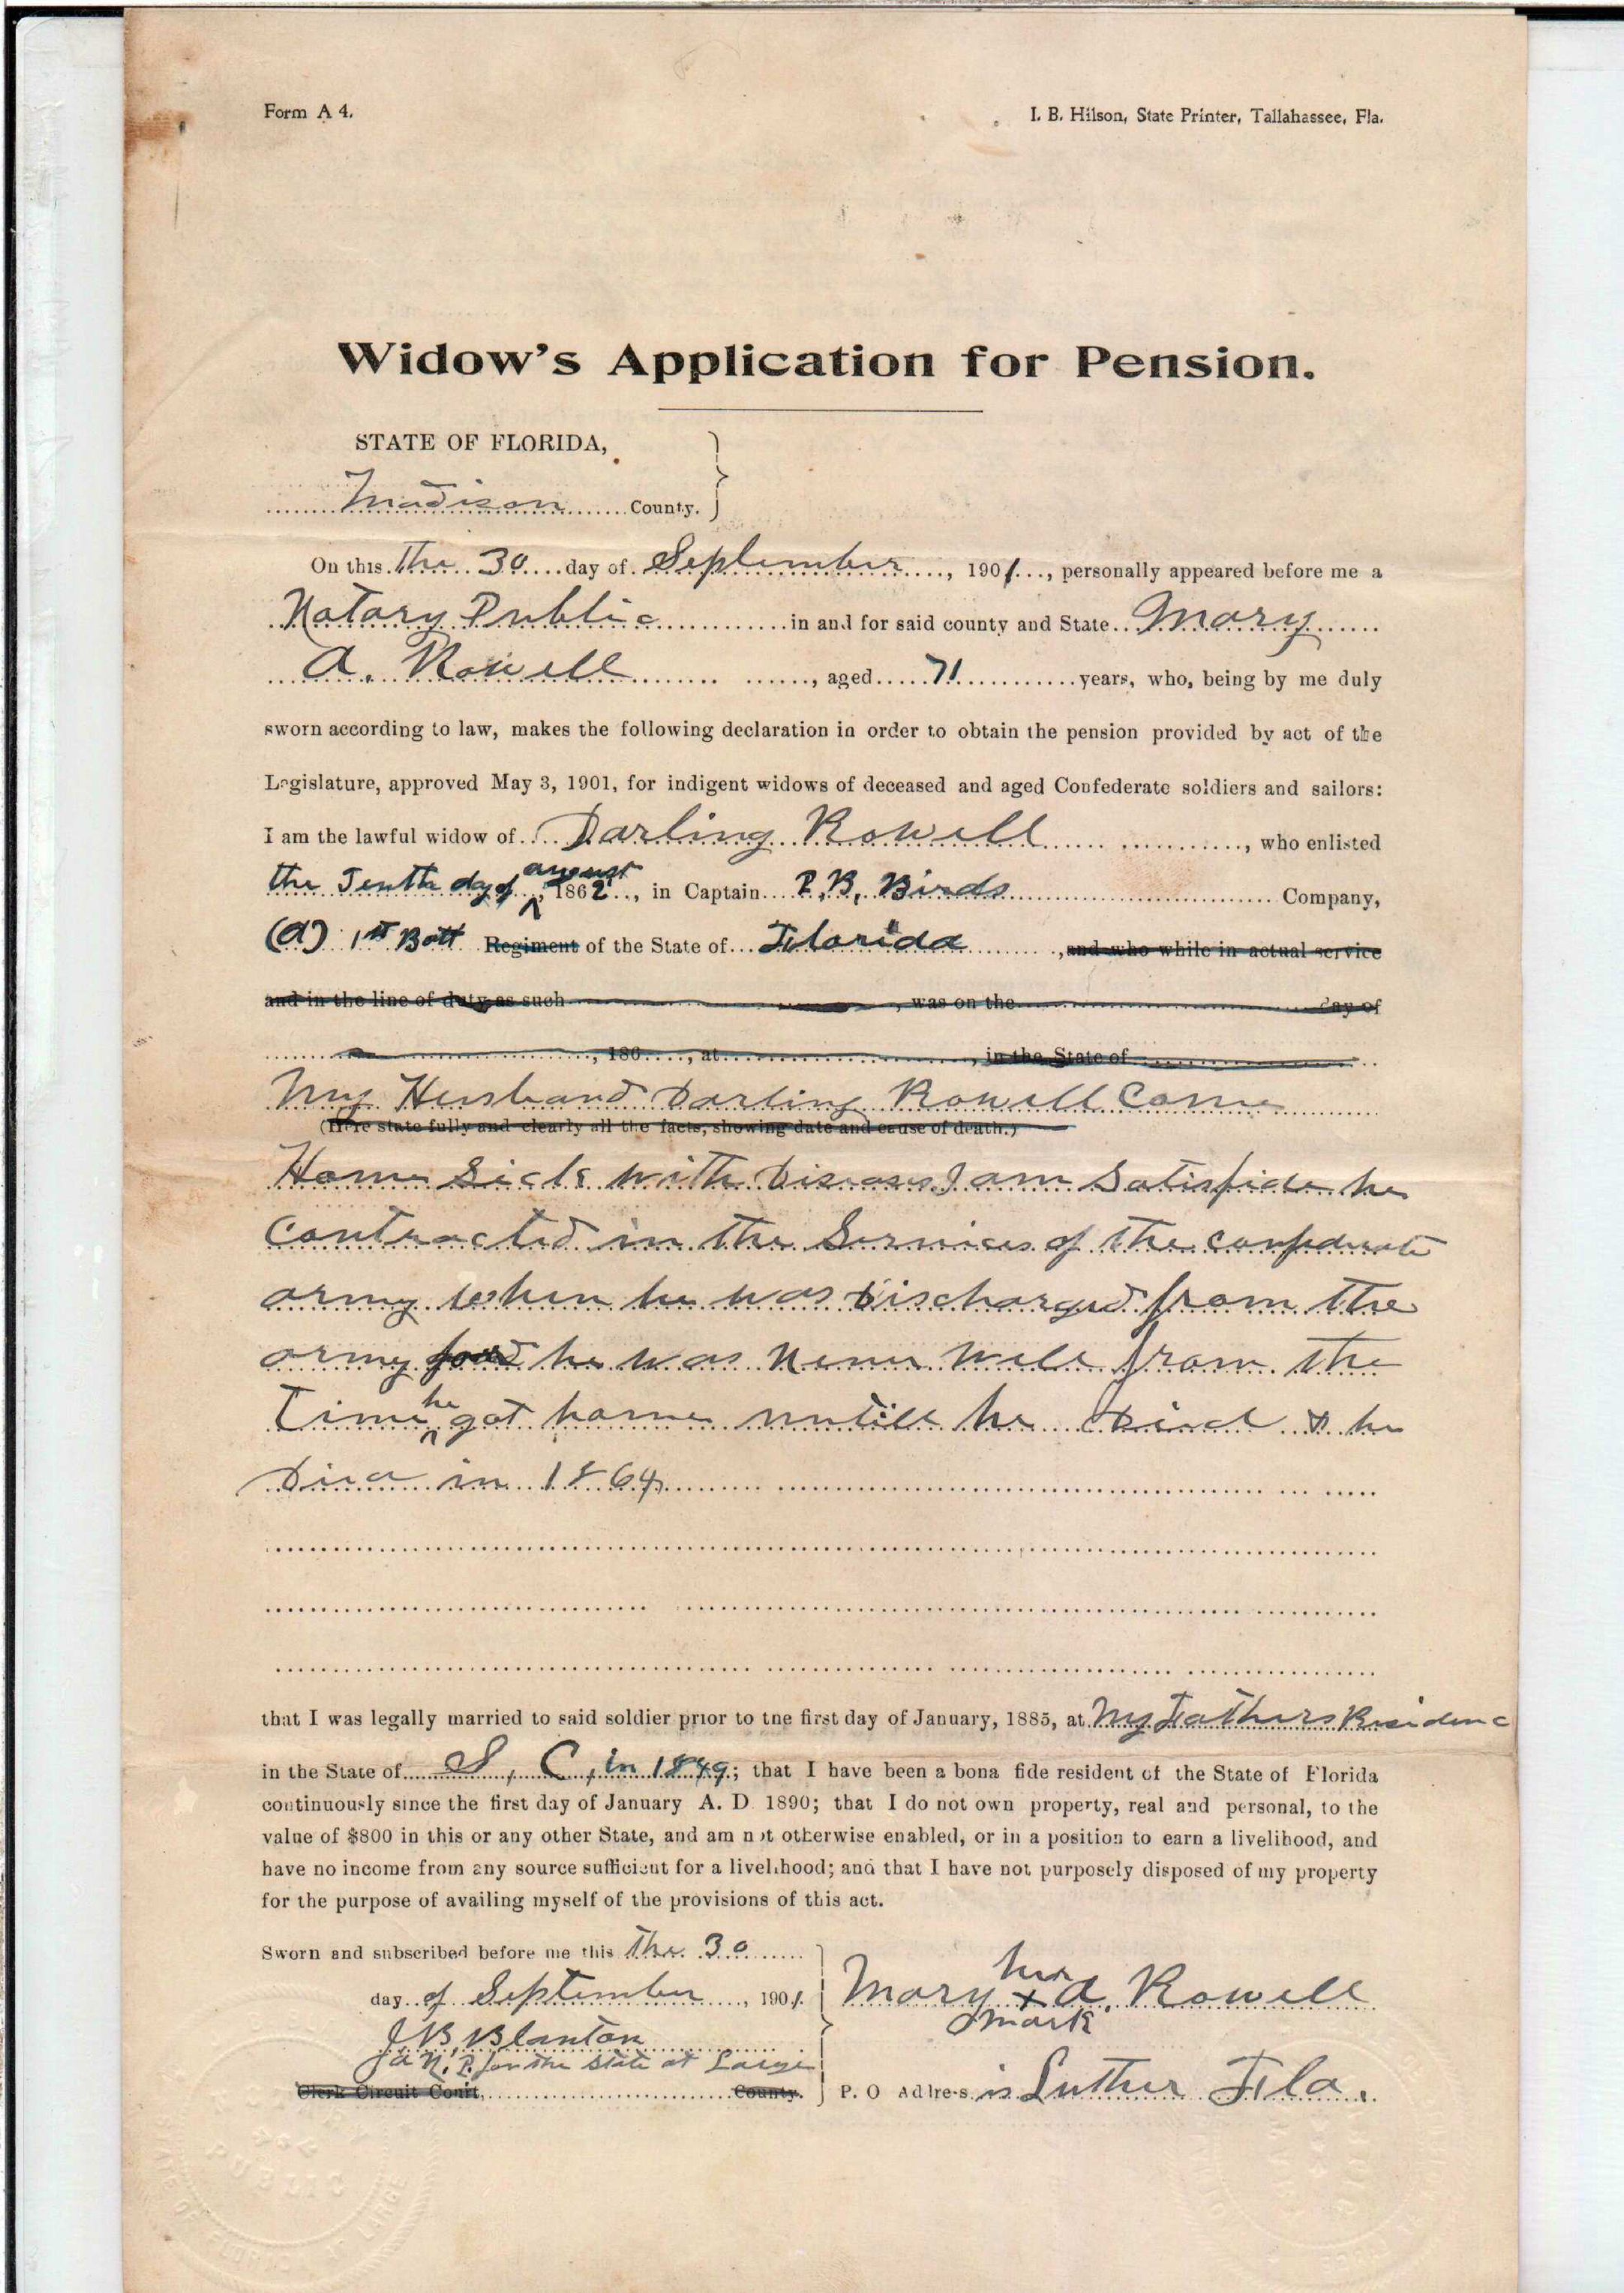 Form A 4.
I. B. Hilson, State Printer, Tallahassee, Fla.
Widow's Application for Pension.
STATE OF FLORIDA,
Madison County.
On this The 30 day of September, 1901, personally appeared before me a
Notary Public in and for said county and State Mary
A. Rowell, aged 71 years, who, being by me duly
sworn according to law, makes the following declaration in order to obtain the pension provided by act of the
Legislature, approved May 3, 1901, for indigent widows of deceased and aged Confederate soldiers and sailors:
I am the lawful widow of Darling Rowell, who enlisted
the Tenth day of august, 1862, in Captain P. B. Birds Company,
(A) 1st Batt Regiment of the State of Florida, and who while in actual service
and in the line of duty as such, was on the day of
, 186, at, in the State of
My Husband Darling Rowell Came
(Here state fully and clearly all the facts, showing date and cause of death.)
Home Sick with Diseases I am Satisfide he
Contracted in the Services of the confederate
army when he was Discharged from the
army he was Never Well from the
Time he got home untill he Died & he
Died in 1864
that I was legally married to said soldier prior to the first day of January, 1885, at My Fathers Residenc
in the State of S, C, in 1849; that I have been a bona fide resident of the State of Florida
continuously since the first day of January A. D 1890; that I do not own property, real and personal, to the
value of $800 in this or any other State, and am not otherwise enabled, or in a position to earn a livelihood, and
have no income from any source sufficient for a livelihood; and that I have not purposely disposed of my property
for the purpose of availing myself of the provisions of this act.
Sworn and subscribed before me this The 30
day of September, 1901.
J B Blanton
a N. P. for the State at Large
Clerk Circuit Court, County.
her
Mary x A. Rowell
mark
P. O Address is Luther Fla.
PUBLIC